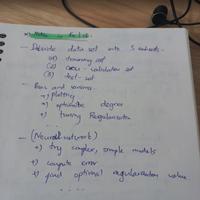 - Divide data set into 3 subsets:
(1) training set
(2) cross-validation set
(3) test-set
- Bias and variance
→) plotting
→) optimise degree
→) tuning Regularization
- (Neural network)
→) try complex, simple models
→) compute error
→) find optimal regularization value
. . . .